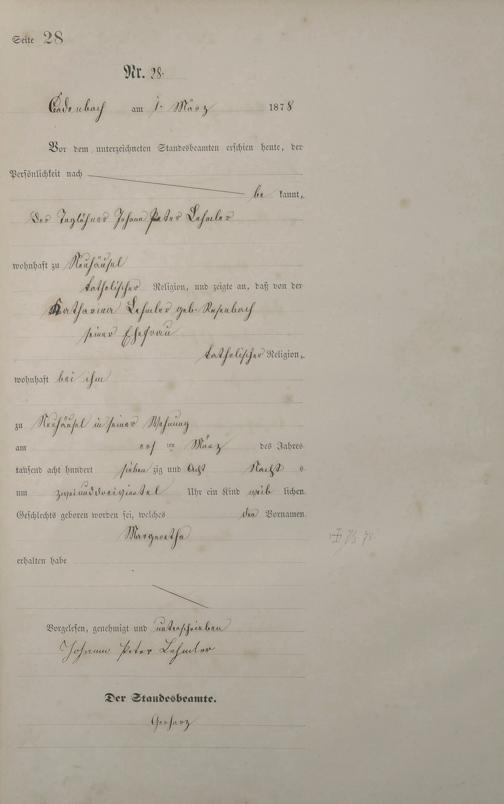 Seite 28
Nr. 28.
Cadenbach am 1. März 1878
Vor dem unterzeichneten Standesbeamten erschien heute, der
Persönlichkeit nach
be kannt,
der Taglöhner Johann Peter Lehmler
wohnhaft zu Neuhäusel
katholischer Religion, und zeigte an, daß von der
Katharina Lehmler geb.
seiner Ehefrau
katholischer Religion,
wohnhaft bei ihm
zu Neuhäusel in seiner Wohnung
am ten März des Jahres
tausend acht hundert sieben zig und Acht Nachts
um zweiunddreiviertel Uhr ein Kind weib lichen
Geschlechts geboren worden sei, welches den Vornamen
Margaretha
erhalten habe
Vorgelesen, genehmigt und unterschrieben
Johann Peter Lehmler
Der Standesbeamte.
Gerharz